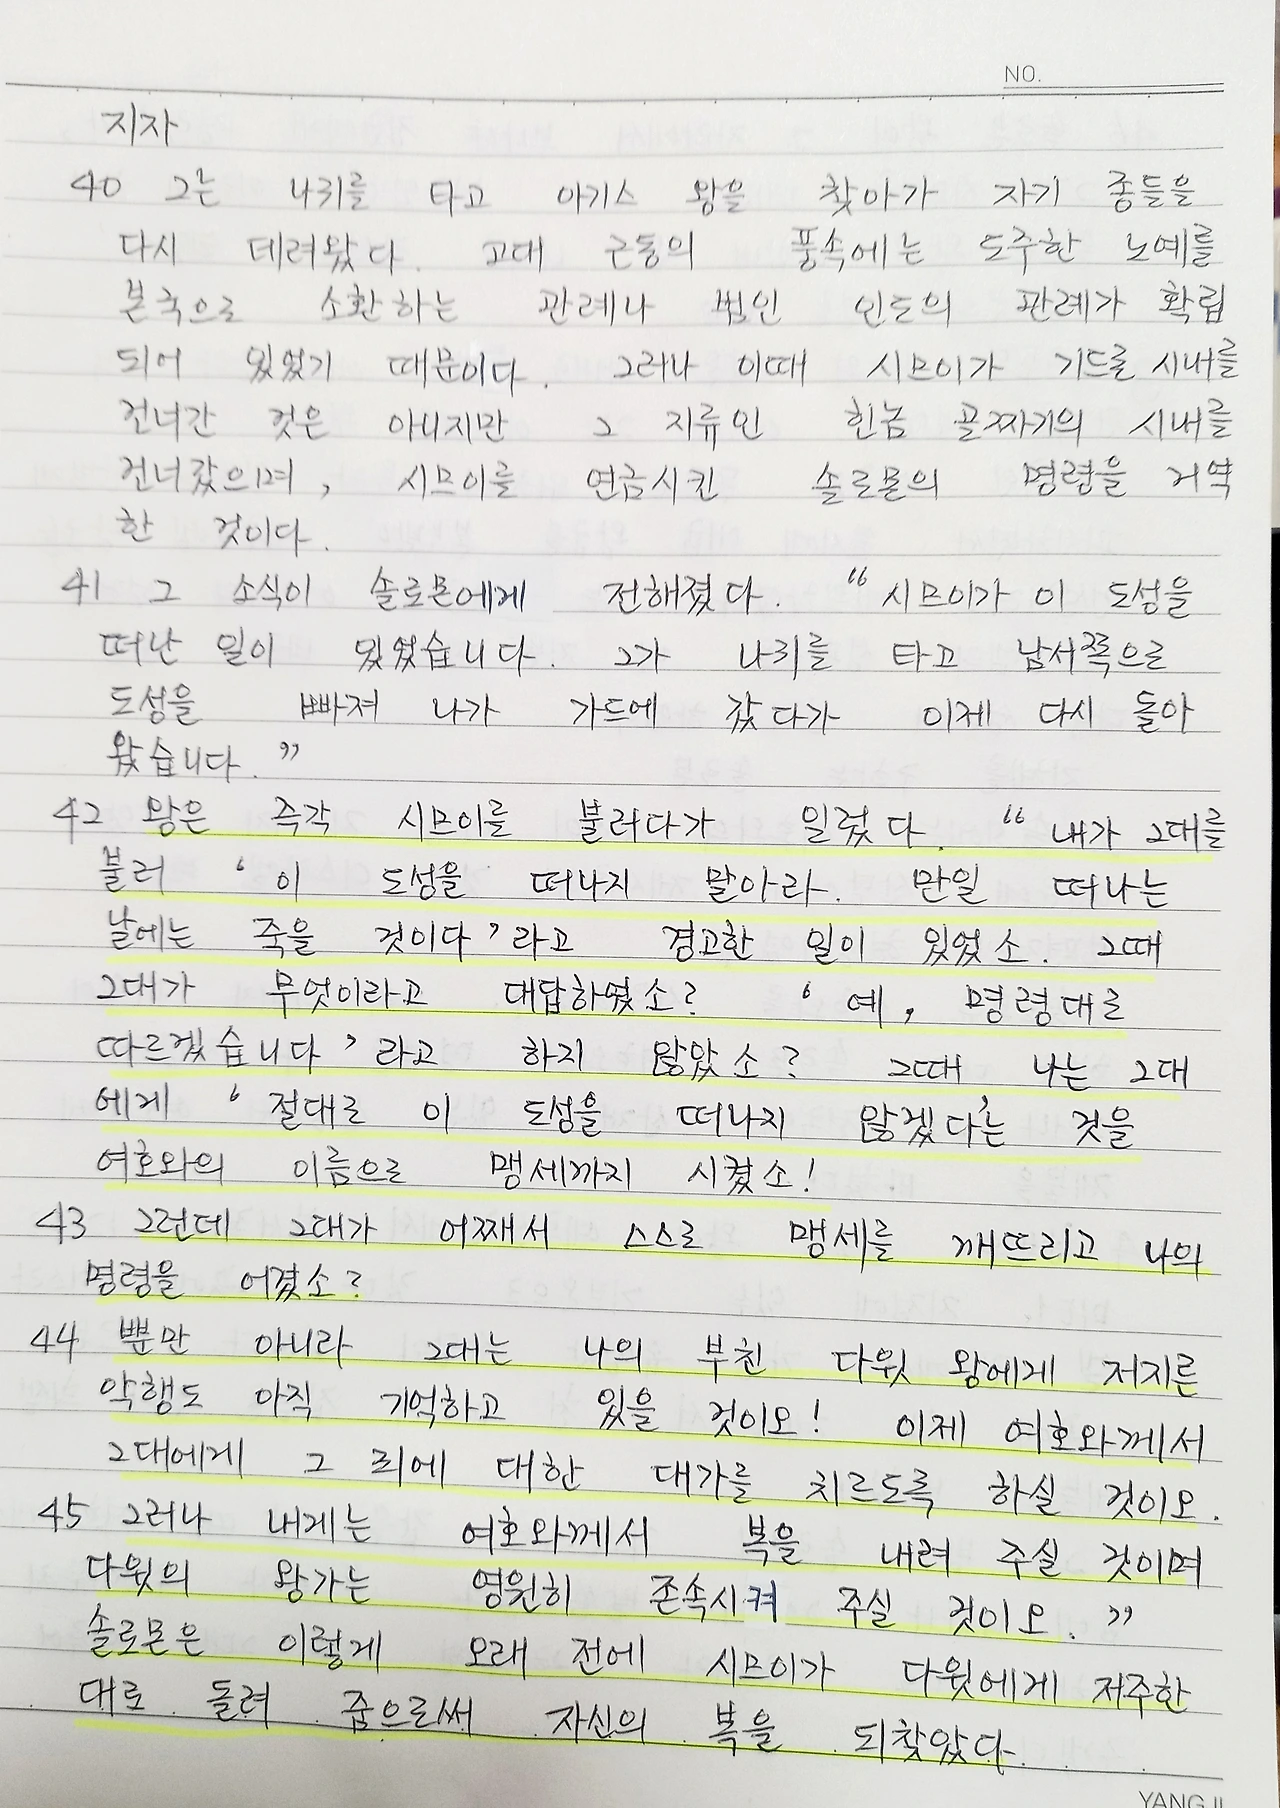 NO.
지자
40 그는 나귀를 타고 아기스 왕을 찾아가 자기 종들을
다시 데려왔다. 고대 근동의 풍속에는 도주한 노예를
본국으로 소환하는 관례나 범인 인도의 관례가 확립
되어 있었기 때문이다. 그러나 이때 시므이가 기드론 시내를
건너간 것은 아니지만 그 지류인 힌놈 골짜기의 시내를
건너갔으며, 시므이를 연금시킨 솔로몬의 명령을 거역
한 것이다.
41 그 소식이 솔로몬에게 전해졌다. “시므이가 이 도성을
떠난 일이 있었습니다. 그가 나귀를 타고 남서쪽으로
도성을 빠져 나가 가드에 갔다가 이제 다시 돌아
왔습니다.”
42 왕은 즉각 시므이를 불러다가 일렀다. “내가 그대를
불러 ‘이 도성을 떠나지 말아라. 만일 떠나는
날에는 죽을 것이다’라고 경고한 일이 있었소. 그때
그대가 무엇이라고 대답하였소? ‘예, 명령대로
따르겠습니다’라고 하지 않았소? 그때 나는 그대
에게 ‘절대로 이 도성을 떠나지 않겠다’는 것을
여호와의 이름으로 맹세까지 시켰소!
43 그런데 그대가 어째서 스스로 맹세를 깨뜨리고 나의
명령을 어겼소?
44 뿐만 아니라 그대는 나의 부친 다윗 왕에게 저지른
악행도 아직 기억하고 있을 것이오! 이제 여호와께서
그대에게 그 죄에 대한 대가를 치르도록 하실 것이오.
45 그러나 내게는 여호와께서 복을 내려 주실 것이며
다윗의 왕가는 영원히 존속시켜 주실 것이오.”
솔로몬은 이렇게 오래 전에 시므이가 다윗에게 저주한
대로 돌려 줌으로써 자신의 복을 되찾았다.